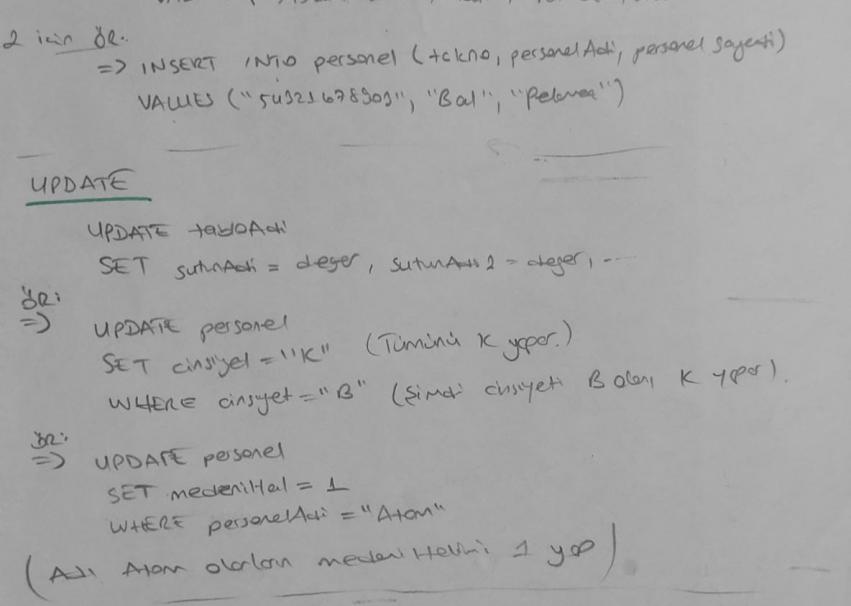 2 için ÖR:
=> INSERT INTO personel (tckno, personelAdi, personel soyadi)
VALUES ("54321678909", "Bal", "Petunya")
UPDATE
UPDATE tabloAdi
SET sutunAdi = deger, sutunAdi 2 = deger, ...
ÖR:
=> UPDATE personel
SET cinsiyet = "K" (Tümünü K yapar.)
WHERE cinsiyet = "B" (Şimdi cinsiyeti B olanı K yapar).
ÖR:
=> UPDATE personel
SET medeniHal = 1
WHERE personelAdi = "Atom"
(Adı Atom olanların medeni Halini 1 yap)